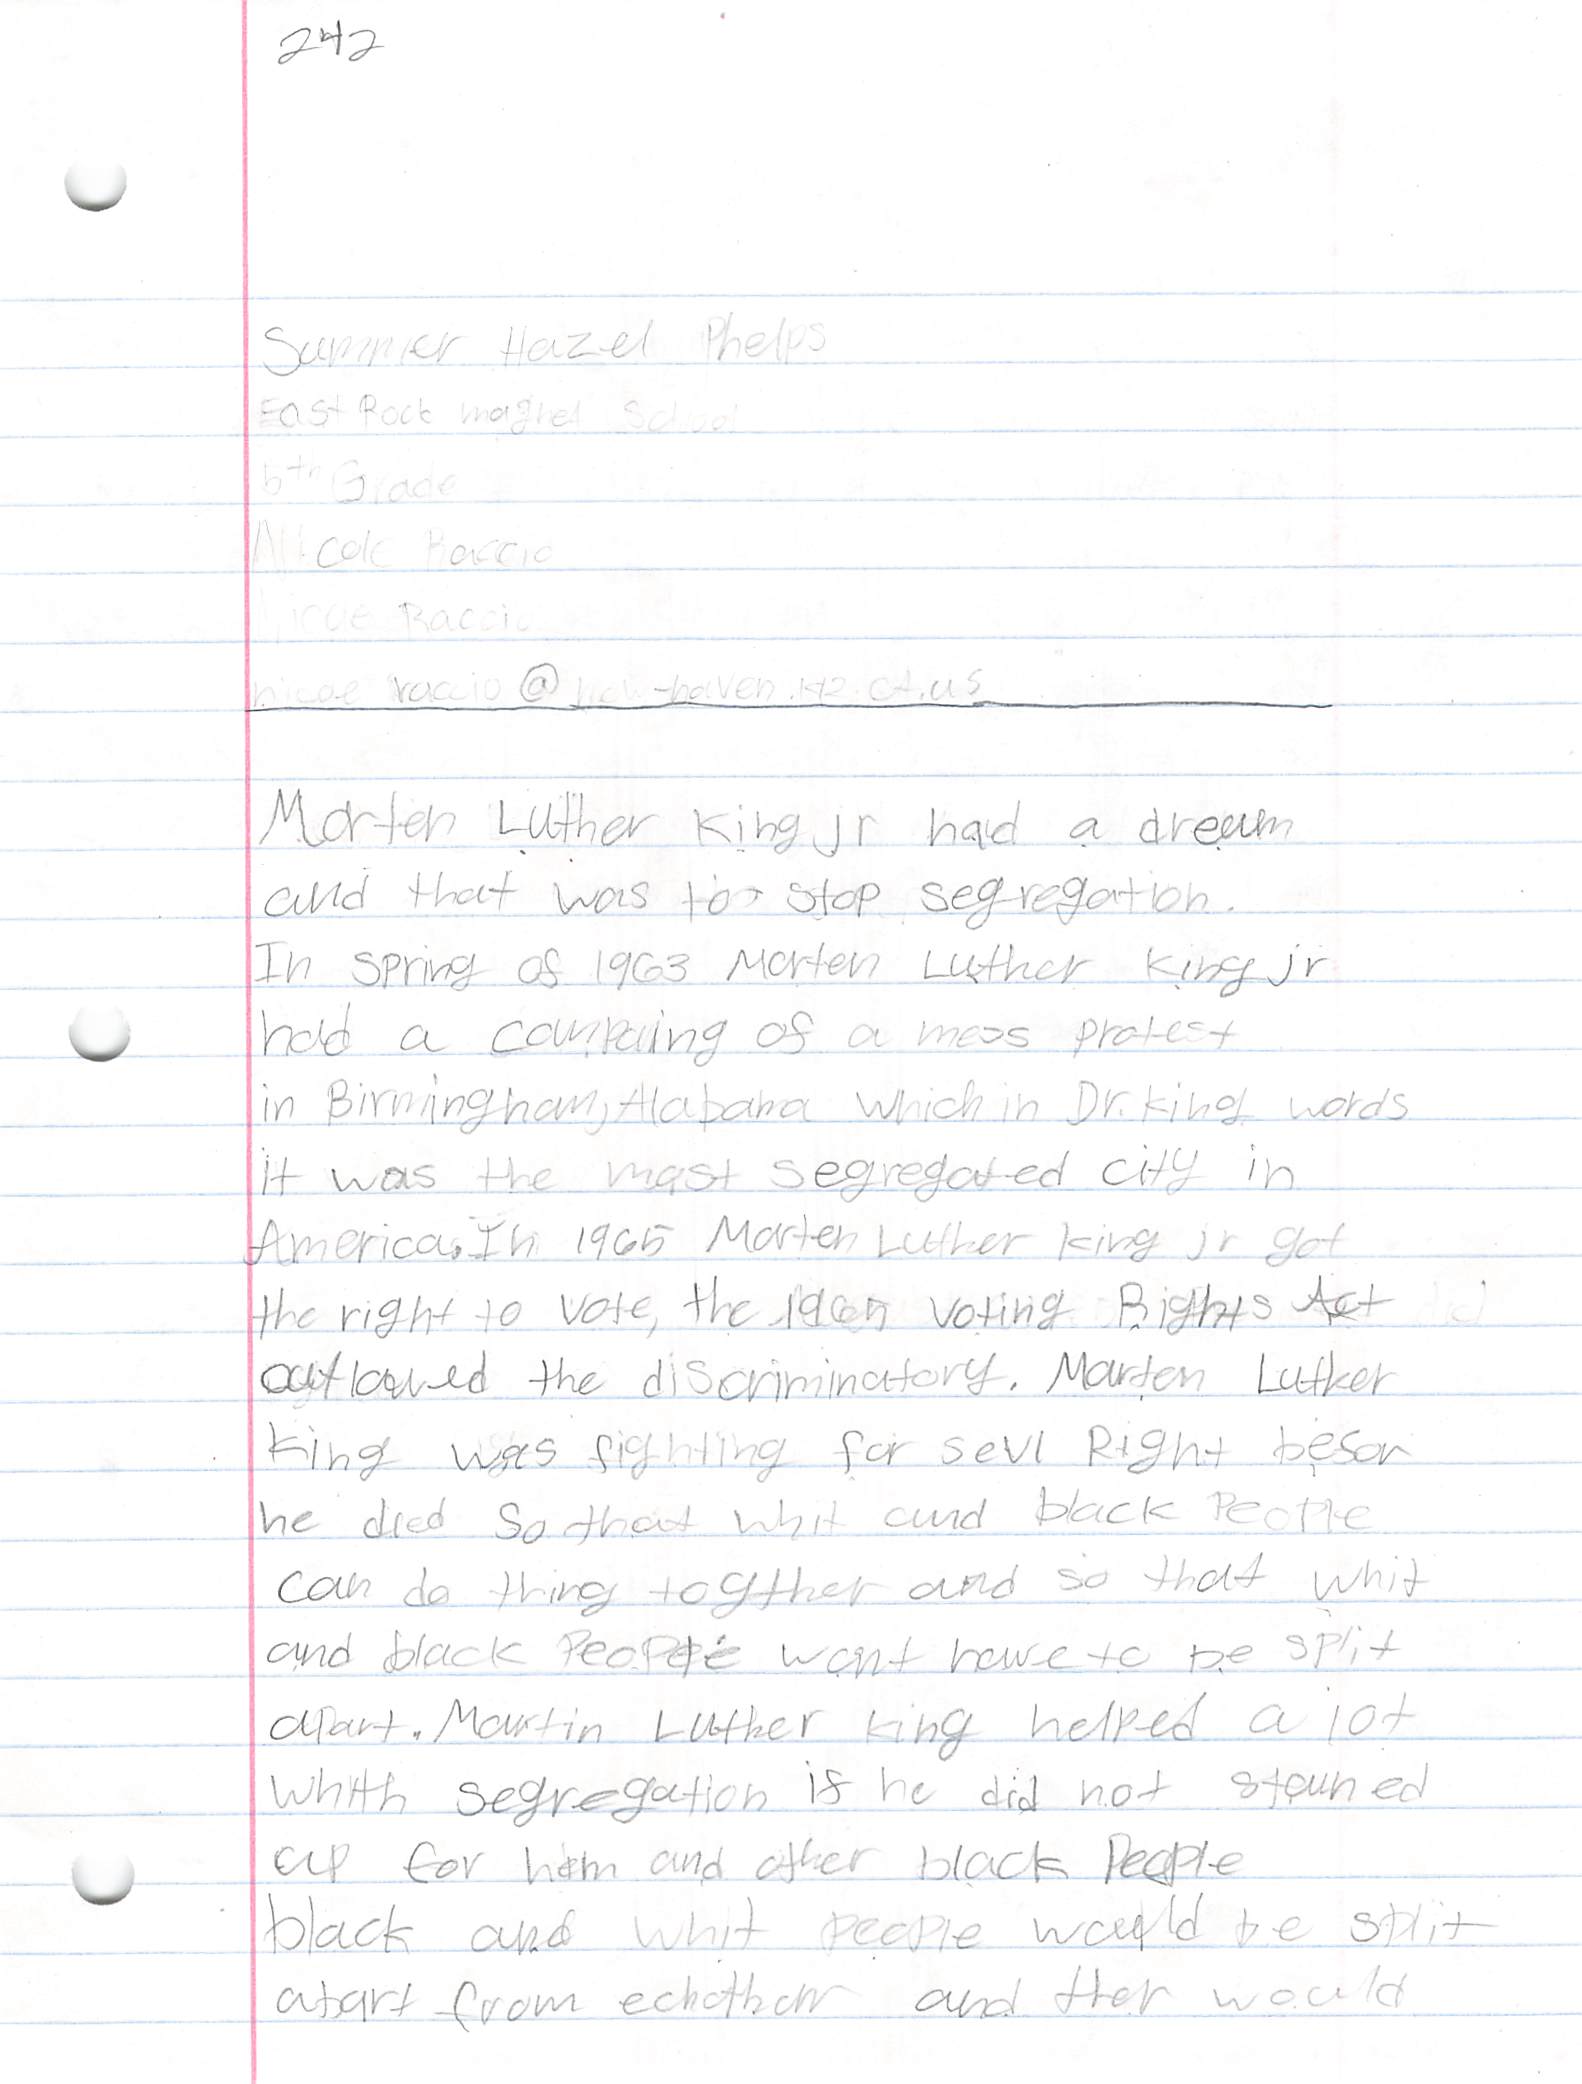 242
Summer Hazel Phelps
East Rock magnet School
5th Grade
Nicole Raccio
Raccio
raccio@new-haven.k12.ct.us
Marten Luther King jr had a dream
and that was to stop segregation.
In spring of 1963 Marten Luther King jr
had a campaing of a mass protest
in Birmingham, Alabama which in Dr. King words
it was the most segregated city in
America. In 1965 Marten Luther King jr got
the right to vote, the 1965 Voting Rights Act
outlawed the discriminatory. Marten Luther
King was fighting for sevl Right befor
he died so that whit and black People
can do thing togther and so that whit
and black People wont have to be split
apart. Martin Luther King helped a lot
whith segregation if he did not staned
up for him and other black People
black and whit people would be split
apart from echother and ther would